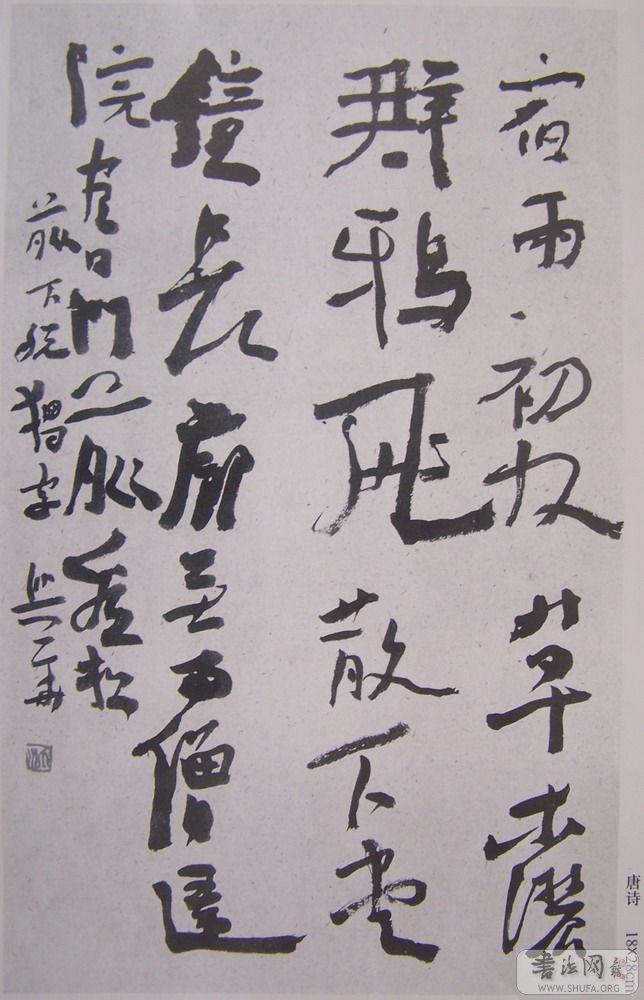 宿雨初收草木濃
群鴉飛散下堂
鐘長廊無事僧歸
院盡日門前看松
前下脫獨字
唐诗 18×28cm
書法网
WWW.SHUFA.ORG